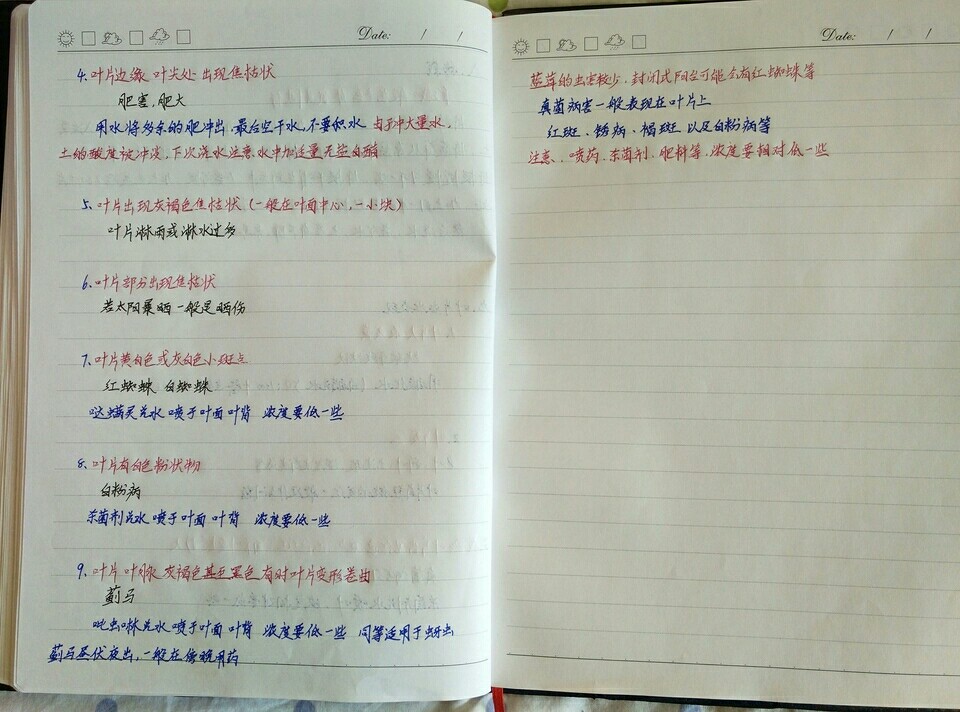 Date: / /
4. 叶片边缘 叶尖处 出现焦枯状
肥害, 肥大
用水将多余的肥冲出. 最后空干水, 不要积水 由于冲大量水,
土的酸度被冲淡, 下次浇水注意水中加适量无盐白醋
5. 叶片出现灰褐色焦枯状 (一般在叶面中心, 一小块)
叶片淋雨或淋水过多
6. 叶片部分出现焦枯状
若太阳暴晒 一般是晒伤
7. 叶片黄白色或灰白色小斑点
红蜘蛛 白蜘蛛
哒螨灵兑水 喷于叶面 叶背 浓度要低一些
8. 叶片有白色粉状物
白粉病
杀菌剂兑水 喷于叶面 叶背 浓度要低一些
9. 叶片 叶脉 灰褐色甚至黑色 有时叶片变形卷曲
蓟马
吡虫啉兑水 喷于叶面 叶背 浓度要低一些 同等适用于蚜虫
蓟马昼伏夜出, 一般在傍晚用药
Date: / /
蓝莓的虫害较少. 封闭式阳台可能会有红蜘蛛等
真菌病害一般表现在叶片上
红斑、锈病、褐斑 以及白粉病等
注意. 喷药. 杀菌剂. 肥料等. 浓度要相对低一些